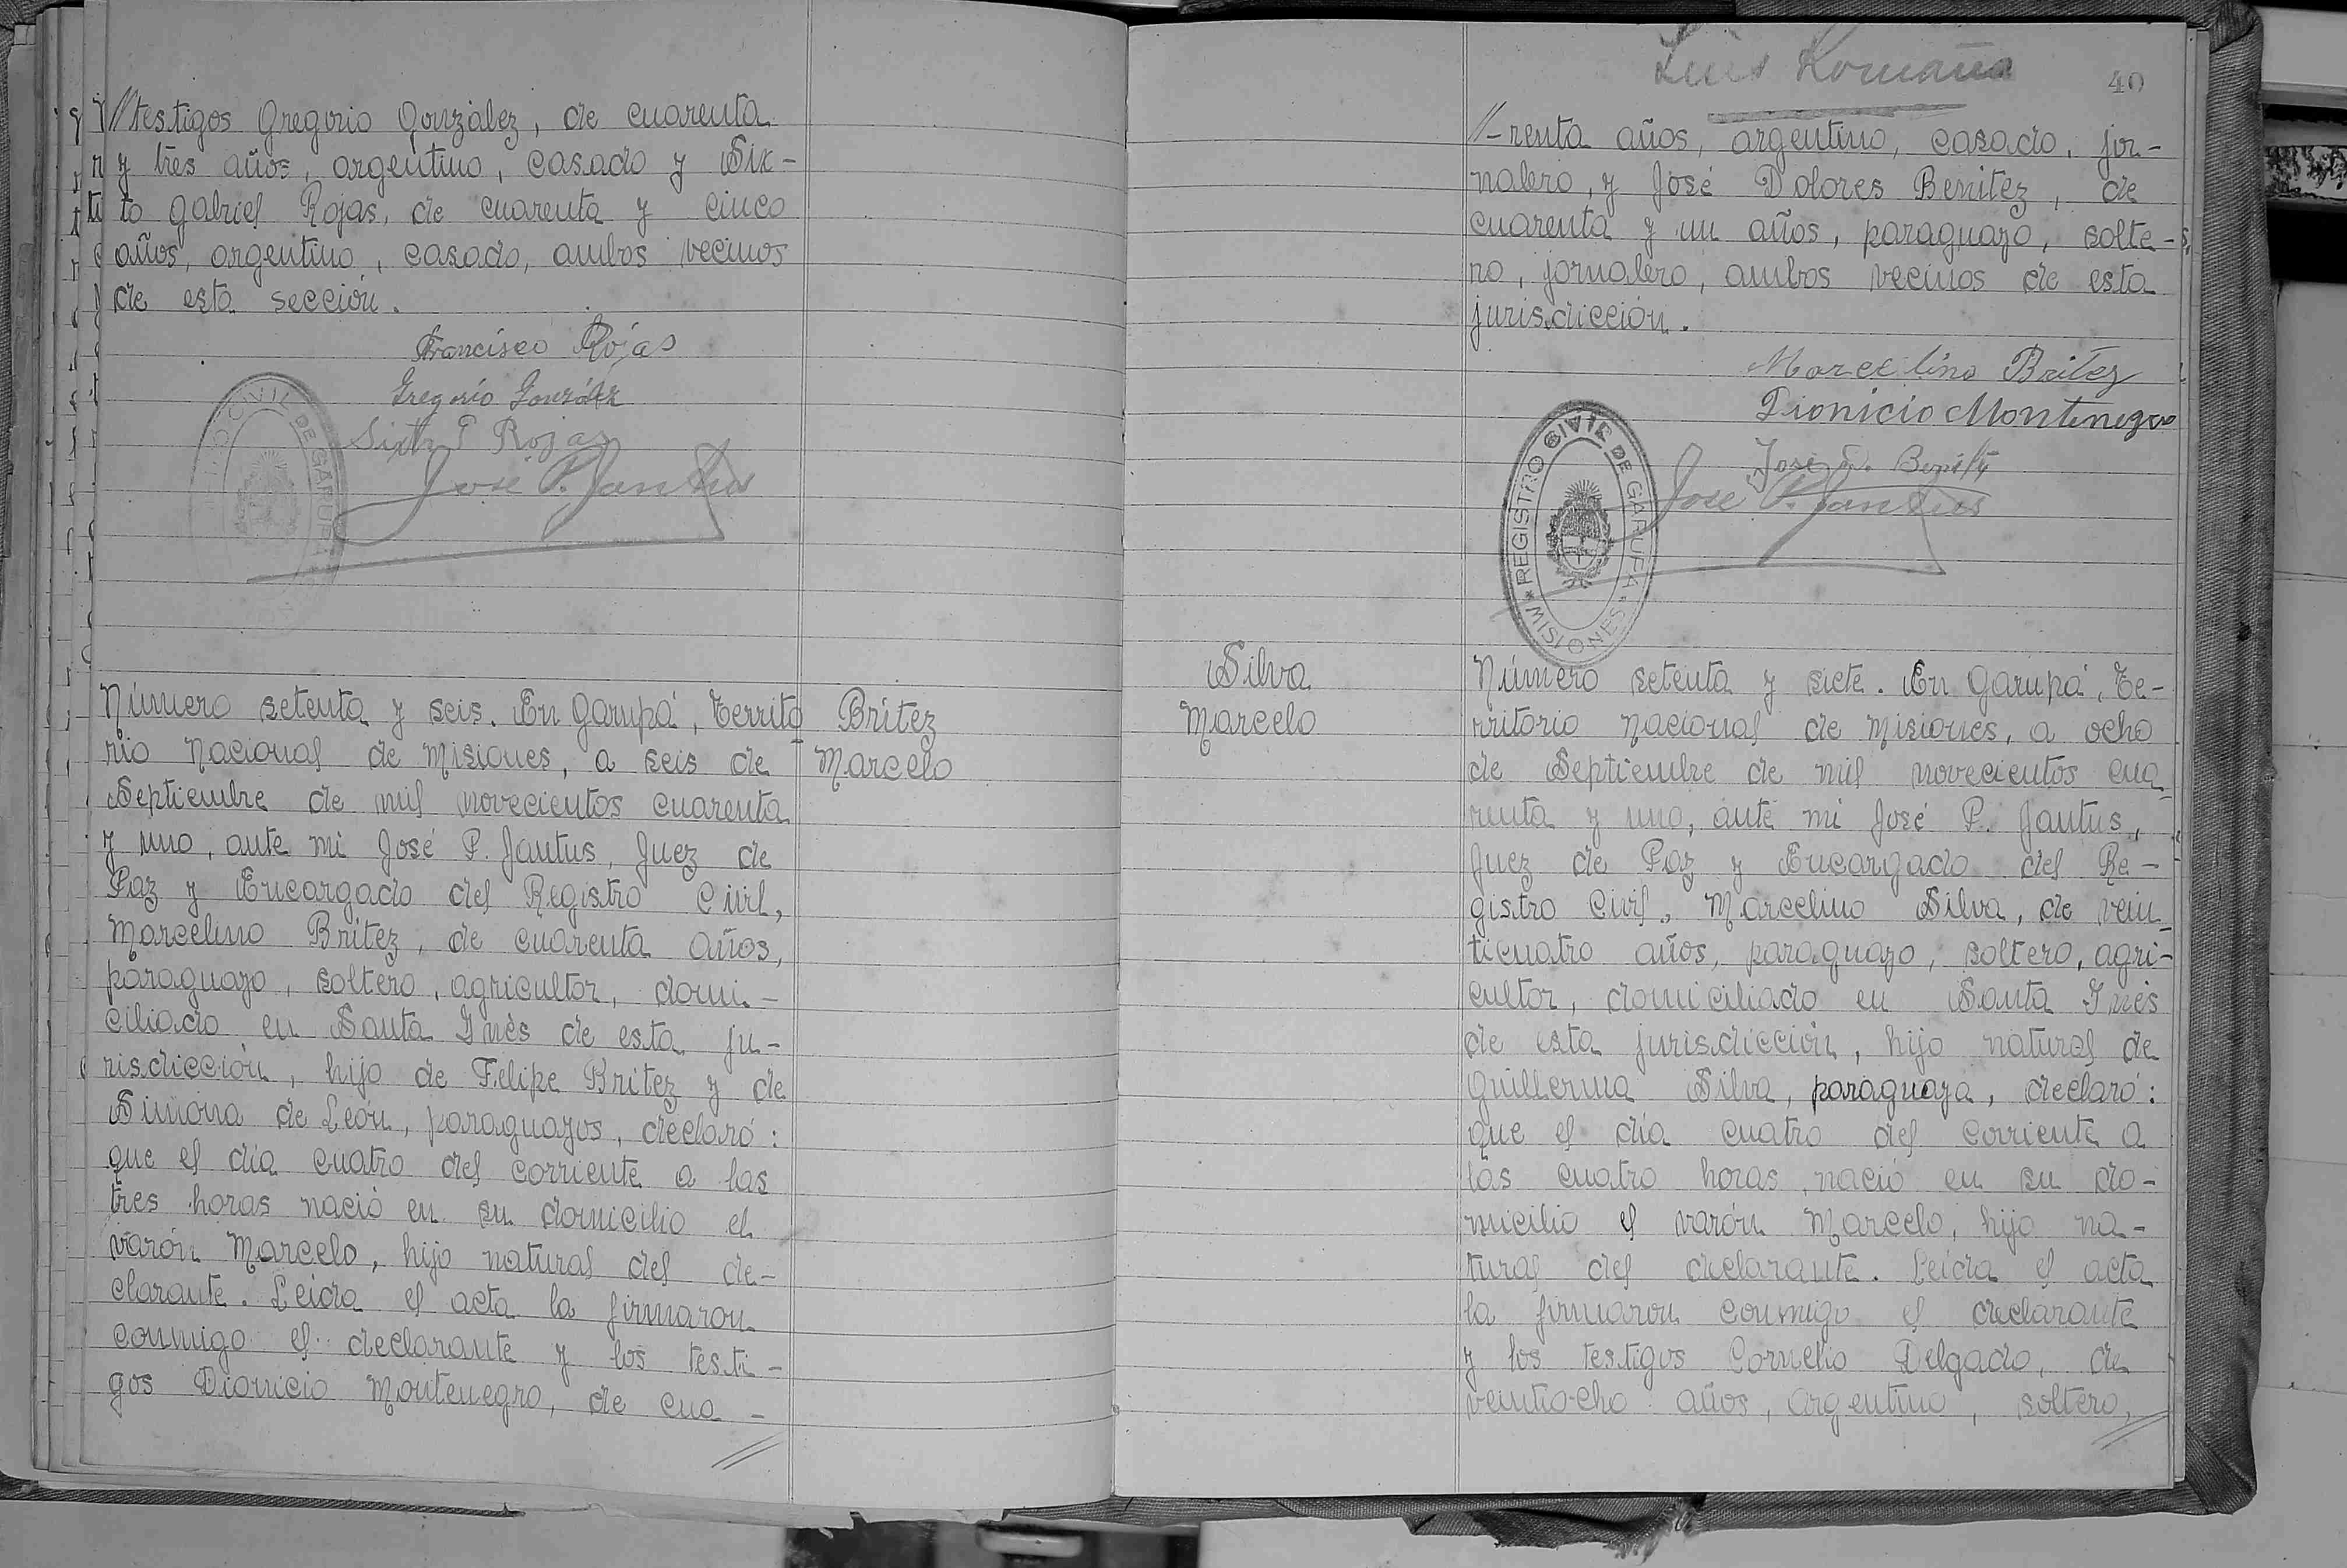 //testigos Gregorio González, de cuarenta
y tres años, argentino, casado y Six-
to Gabriel Rojas, de cuarenta y cinco
años, argentino, casado, ambos vecinos
de esta sección.
Francisco Rojas
Gregorio González
Sixto G Rojas
José P. Jantus
Número setenta y seis. En Garupá, Territo
rio Nacional de Misiones, a seis de
Septiembre de mil novecientos cuarenta
y uno, ante mi José P. Jantus, Juez de
Paz y Encargado del Registro Civil,
Marcelino Britez, de cuarenta años,
paraguayo, soltero, agricultor, domi-
ciliado en Santa Inés de esta ju-
risdicción, hijo de Felipe Britez y de
Simona de León, paraguayos, declaró:
que el día cuatro del corriente a las
tres horas nació en su domicilio el
varón Marcelo, hijo natural del de-
clarante. Leida el acta la firmaron
conmigo el declarante y los testi-
gos Dionicio Montenegro, de cua-
//
Britez
Marcelo
Luis Romaña
40
//-renta años, argentino, casado, jor-
nalero, y José Dolores Benitez, de
cuarenta y un años, paraguayo, solte-
ro, jornalero, ambos vecinos de esta
jurisdicción.
Marcelino Britez
Dionicio Montenegro
José D. Benitez
José P. Jantus
REGISTRO CIVIL DE GARUPA
* MISIONES *
Silva
Marcelo
Número setenta y siete. En Garupá, Te-
rritorio Nacional de Misiones, a ocho
de Septiembre de mil novecientos cua-
renta y uno, ante mi José P. Jantus,
Juez de Paz y Encargado del Re-
gistro Civil, Marcelino Silva, de vein-
ticuatro años, paraguayo, soltero, agri-
cultor, domiciliado en Santa Inés
de esta jurisdicción, hijo natural de
Guillerma Silva, paraguaya, declaró:
que el día cuatro del corriente a
las cuatro horas, nació en su do-
micilio el varón Marcelo, hijo na-
tural del declarante. Leida el acta
la firmaron conmigo el declarante
y los testigos Cornelio Delgado, de
veintiocho años, argentino, soltero,
//